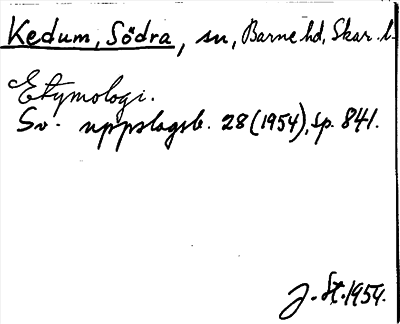 Kedum, Södra, sn, Barne hd, Skar. l.
Etymologi.
Sv. uppslagsb. 28 (1954), sp. 841.
J. St. 1954.